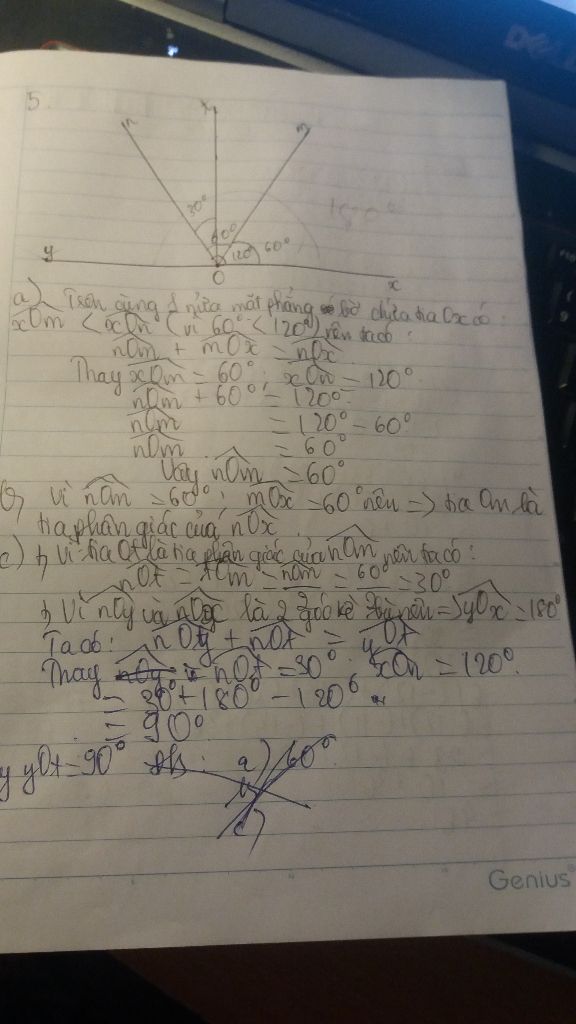 5.
n t m
30° 60° 120° 60° 180°
y O x
a) Trên cùng 1 nửa mặt phẳng bờ chứa tia Ox có:
xOm < xOn (vì 60° < 120°) nên ta có:
nOm + mOx = nOx
Thay xOm = 60°; xOn = 120°
nOm + 60° = 120°
nOm = 120° - 60°
nOm = 60°
Vậy nOm = 60°
b) Vì nOm = 60°; mOx = 60° nên => tia Om là
tia phân giác của nOx
c) Vì tia Ot là tia phân giác của nOm nên ta có:
nOt = tOm = nOm = 60° = 30°
Vì nOy và nOx là 2 góc kề bù nên => yOx = 180°
Ta có: nOy + nOt = yOt
Thay nOt = 30°; xOn = 120°
= 30° + 180° - 120°
= 90°
y yOt = 90° a) 60°
c)
Genius
DELL